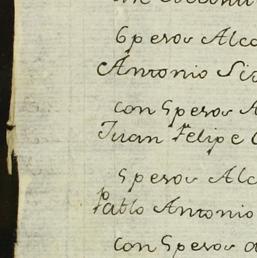 6 pesos Alc
Antonio
con 5 pesos A
Juan Felipe
5 pesos Alc
Pablo Antonio
con 5 pesos a